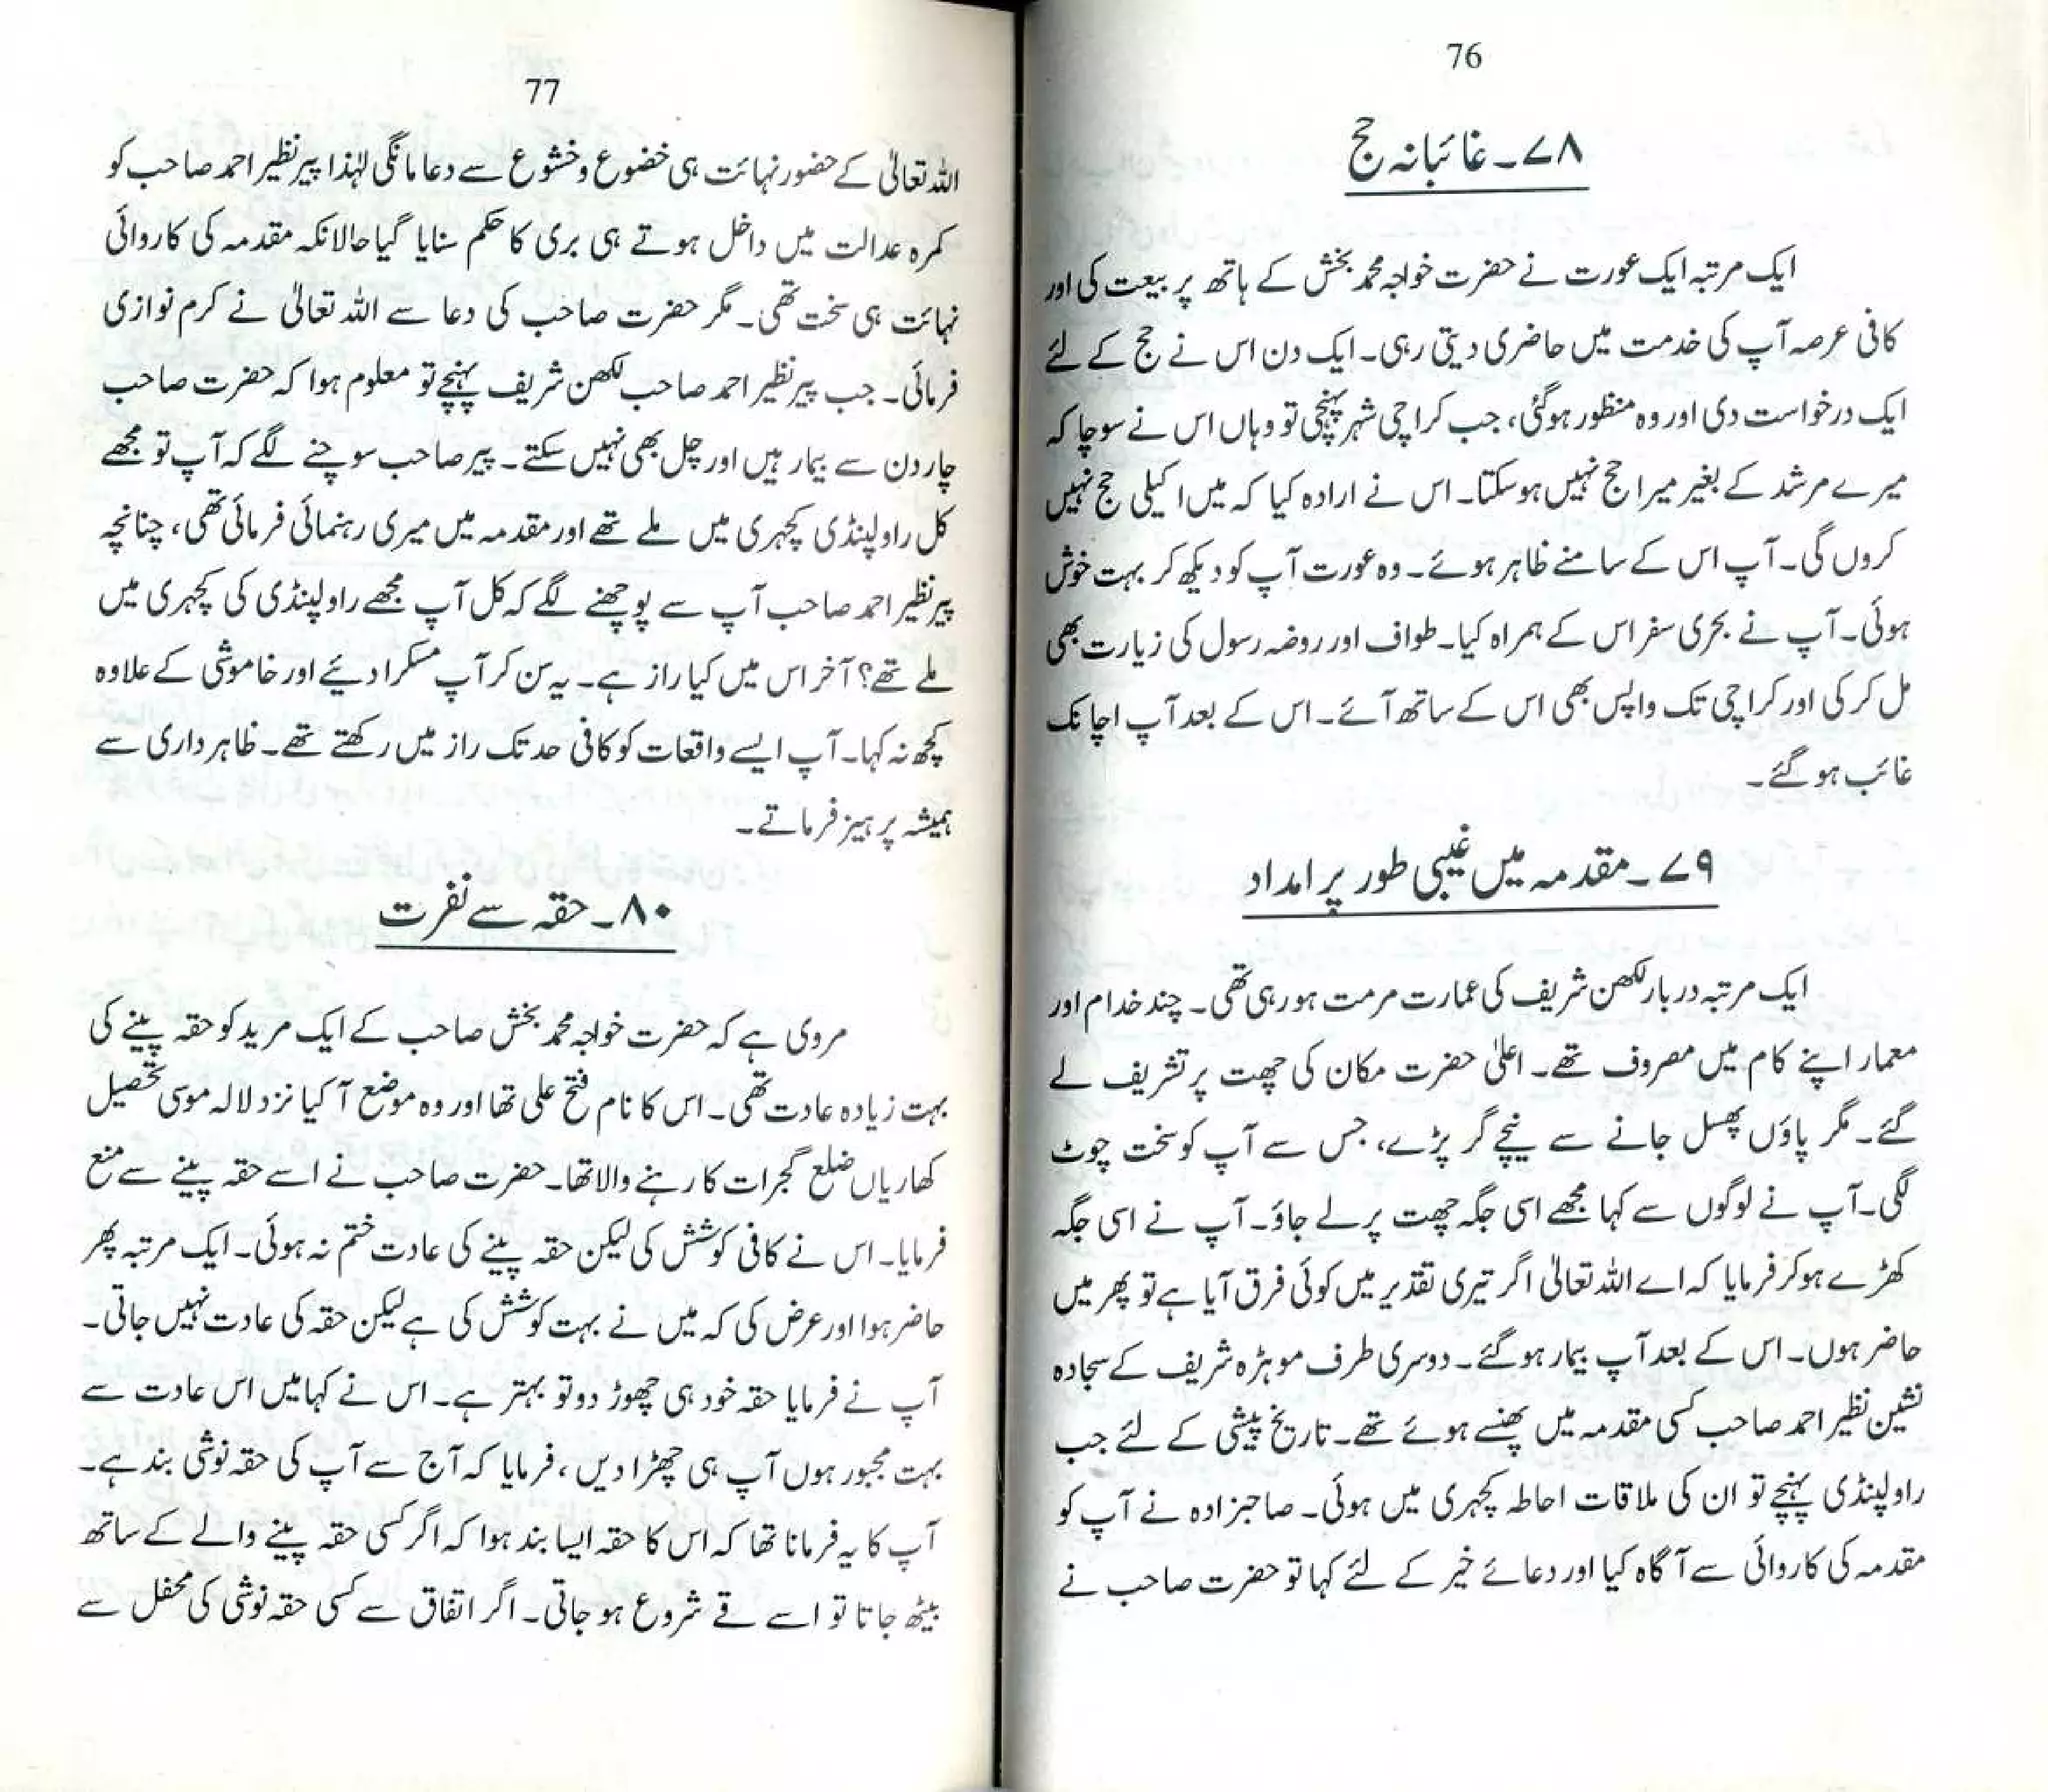 76
۷۸۔ غائبانہ حج
ایک مرتبہ ایک عورت نے حضرت خواجہ محمد بخش کے ہاتھ پر بیعت کی اور
کافی عرصہ آپ کی خدمت میں حاضری دیتی رہی۔ ایک دن اس نے حج کے لئے
ایک درخواست دی اور وہ منظور ہوگئی، جب کراچی شہر پہنچی تو وہاں اس نے سوچا کہ
میرے مرشد کے بغیر میرا حج نہیں ہوسکتا۔ اس نے ارادہ کیا کہ میں اکیلی حج نہیں
کروں گی۔ آپ اس کے سامنے ظاہر ہوئے۔ وہ عورت آپ کو دیکھ کر بہت خوش
ہوئی۔ آپ نے بحری سفر اس کے ہمراہ کیا۔ طواف اور روضہ رسول کی زیارت بھی
مل کر کی اور کراچی تک واپس بھی اس کے ساتھ آئے۔ اس کے بعد آپ اچانک
غائب ہوگئے۔
۷۹۔ مقدمہ میں غیبی طور پر امداد
ایک مرتبہ دربار لکھن شریف کی عمارت مرمت ہورہی تھی۔ چند خدام اور
معمار اپنے کام میں مصروف تھے۔ اعلیٰ حضرت مکان کی چھت پر تشریف لے
گئے۔ مگر پاؤں پھسل جانے سے نیچے گر پڑے، جس سے آپ کو سخت چوٹ
لگی۔ آپ نے لوگوں سے کہا مجھے اسی جگہ چھت پر لے جاؤ۔ آپ نے اسی جگہ
کھڑے ہوکر فرمایا کہ اے اللہ تعالیٰ اگر تیری تقدیر میں کوئی فرق آیا ہے تو پھر میں
حاضر ہوں۔ اس کے بعد آپ بیمار ہوگئے۔ دوسری طرف موہڑہ شریف کے سجادہ
نشین نظیر احمد صاحب کسی مقدمہ میں پھنسے ہوئے تھے۔ تاریخ پیشی کے لئے جب
راولپنڈی پہنچے تو ان کی ملاقات احاطہ کچہری میں ہوئی۔ صاحبزادہ نے آپ کو
مقدمہ کی کاروائی سے آگاہ کیا اور دعائے خیر کے لئے کہا تو حضرت صاحب نے
77
اللہ تعالیٰ کے حضور نہائت ہی خضوع و خشوع سے دعا مانگی لہٰذا پیر نظیر احمد صاحب کو
کمرہ عدالت میں داخل ہوتے ہی بری کا حکم سنایا گیا حالانکہ مقدمہ کی کاروائی
نہائت ہی سخت تھی۔ مگر حضرت صاحب کی دعا سے اللہ تعالیٰ نے کرم نوازی
فرمائی۔ جب پیر نظیر احمد صاحب لکھن شریف پہنچے تو معلوم ہوا کہ حضرت صاحب
چار دن سے بیمار ہیں اور چل بھی نہیں سکتے۔ پیر صاحب سوچنے لگے کہ آپ تو مجھے
کل راولپنڈی کچہری میں ملے تھے اور مقدمہ میں میری رہنمائی فرمائی تھی، چنانچہ
پیر نظیر احمد صاحب آپ سے پوچھنے لگے کہ کل آپ مجھے راولپنڈی کی کچہری میں
ملے تھے؟ آخر اس میں کیا راز ہے۔ یہ سن کر آپ مسکرا دیئے اور خاموشی کے علاوہ
کچھ نہ کہا۔ آپ ایسے واقعات کو کافی حد تک راز میں رکھتے تھے۔ ظاہر داری سے
ہمیشہ پرہیز فرماتے۔
۸۰۔ حقہ سے نفرت
مروی ہے کہ حضرت خواجہ محمد بخش صاحب کے ایک مرید کو حقہ پینے کی
بہت زیادہ عادت تھی۔ اس کا نام فتح علی تھا اور وہ موضع آکیا نزد لالہ موسیٰ تحصیل
کھاریاں ضلع گجرات کا رہنے والا تھا۔ حضرت صاحب نے اسے حقہ پینے سے منع
فرمایا۔ اس نے کافی کوشش کی لیکن حقہ پینے کی عادت ختم نہ ہوئی۔ ایک مرتبہ پھر
حاضر ہوا اور عرض کی کہ میں نے بہت کوشش کی ہے لیکن حقہ کی عادت نہیں جاتی۔
آپ نے فرمایا حقہ خود ہی چھوڑ دو تو بہتر ہے۔ اس نے کہا میں اس عادت سے
بہت مجبور ہوں آپ ہی چھڑا دیں، فرمایا کہ آج سے آپ کی حقہ نوشی بند ہے۔
آپ کا یہ فرمانا تھا کہ اس کا حقہ ایسا بند ہوا کہ اگر کسی حقہ پینے والے کے ساتھ
بیٹھ جاتا تو اسے قے شروع ہو جاتی۔ اگر اتفاق سے کسی حقہ نوشی کی محفل سے